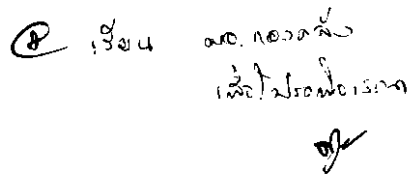 ② เรียน ผอ.กองคลัง
เพื่อโปรดพิจารณา